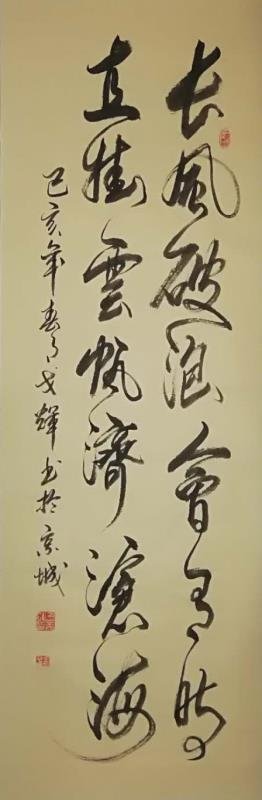 長風破浪會有時
直挂雲帆濟滄海
己亥年春月戈輝书於京城